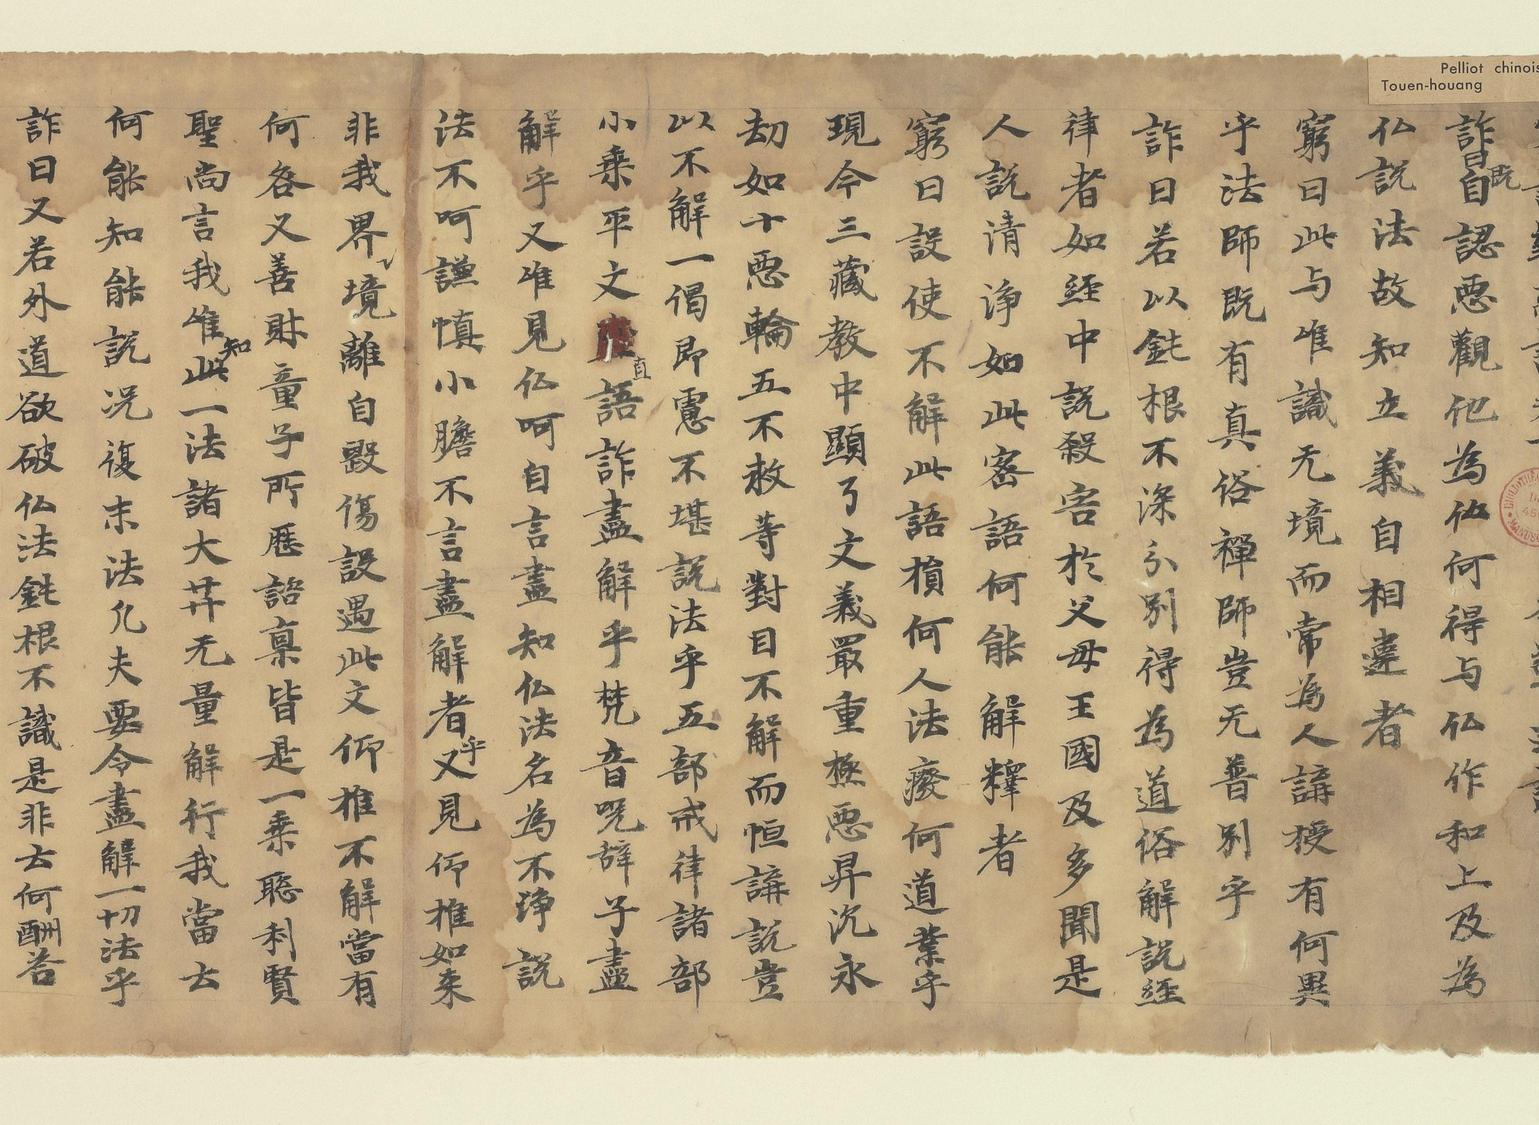 Pelliot chinois
Touen-houang
詐曰既自認惡觀他為仏何得与仏作和上及為
仏說法故知立義自相違者
窮曰此与唯識无境而常為人講授有何異
乎法師既有真俗禪師豈无普別乎
詐曰若以鈍根不深分別得為道俗解說經
律者如經中說殺害於父母王國及多聞是
人說清淨如此密語何能解釋者
窮曰設使不解此語損何人法癈何道業乎
現今三藏教中顯了文義㝡重極惡昇沉永
劫如十惡輪五不救等對目不解而恒講說豈
以不解一偈即憲不堪說法乎五部戒律諸部
小乘平文直語詐盡解乎梵音呪辞子盡
解乎又唯見仏呵自言盡知仏法名為不諍說
法不呵謙慎小膽不言盡解者乎又見仰推如来
非我界境離自毀傷設遇此文仰推不解當有
何咎又善財童子所歷諮稟皆是一乘聡利賢
聖尚言我唯知此一法諸大𦬇无量解行我當云
何能知能說况復末法凡夫要令盡解一切法乎
詐曰又若外道欲破仏法鈍根不識是非云何酬荅